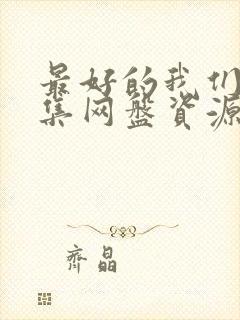 最好的我们
集网盘资源
齐晶